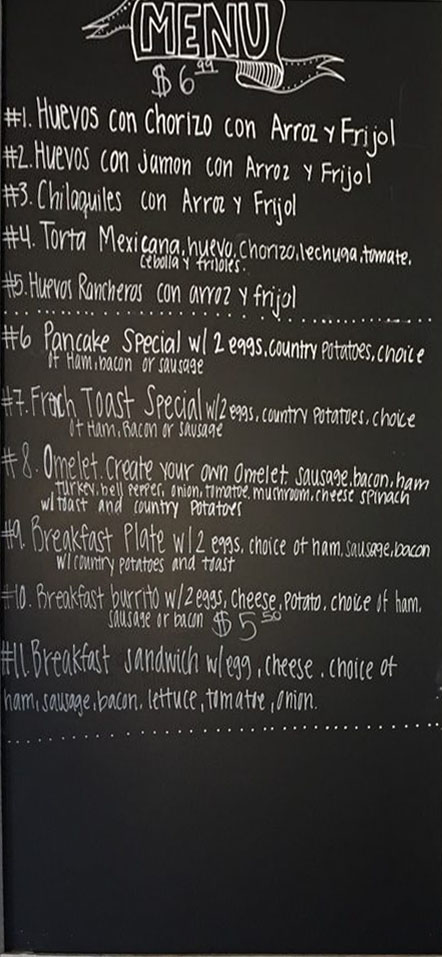 MENU
$6.99
#1. Huevos con Chorizo con Arroz y Frijol
#2. Huevos con jamon con Arroz y Frijol
#3. Chilaquiles con Arroz y Frijol
#4. Torta Mexicana, huevo, Chorizo, lechuga, tomate,
Cebolla y frijoles.
#5. Huevos Rancheros con arroz y frijol
#6 Pancake Special w/ 2 eggs, country Potatoes, choice
of Ham, bacon or sausage
#7. Frnch Toast Special w/ 2 eggs, country Potatoes, choice
of Ham, Bacon or Sausage
#8. Omelet. Create your own Omelet. sausage, bacon, ham
turkey, bell pepper, onion, tomatoe, mushroom, cheese spinach
w/ toast and country Potatoes
#9. Breakfast Plate w/ 2 eggs, choice of ham, sausage, bacon
w/ country potatoes and toast
#10. Breakfast burrito w/ 2 eggs, Cheese, Potato, choice of ham,
sausage or bacon $5.50
#11. Breakfast sandwich w/ egg, cheese, choice of
ham, sausage, bacon, lettuce, tomatoe, onion.